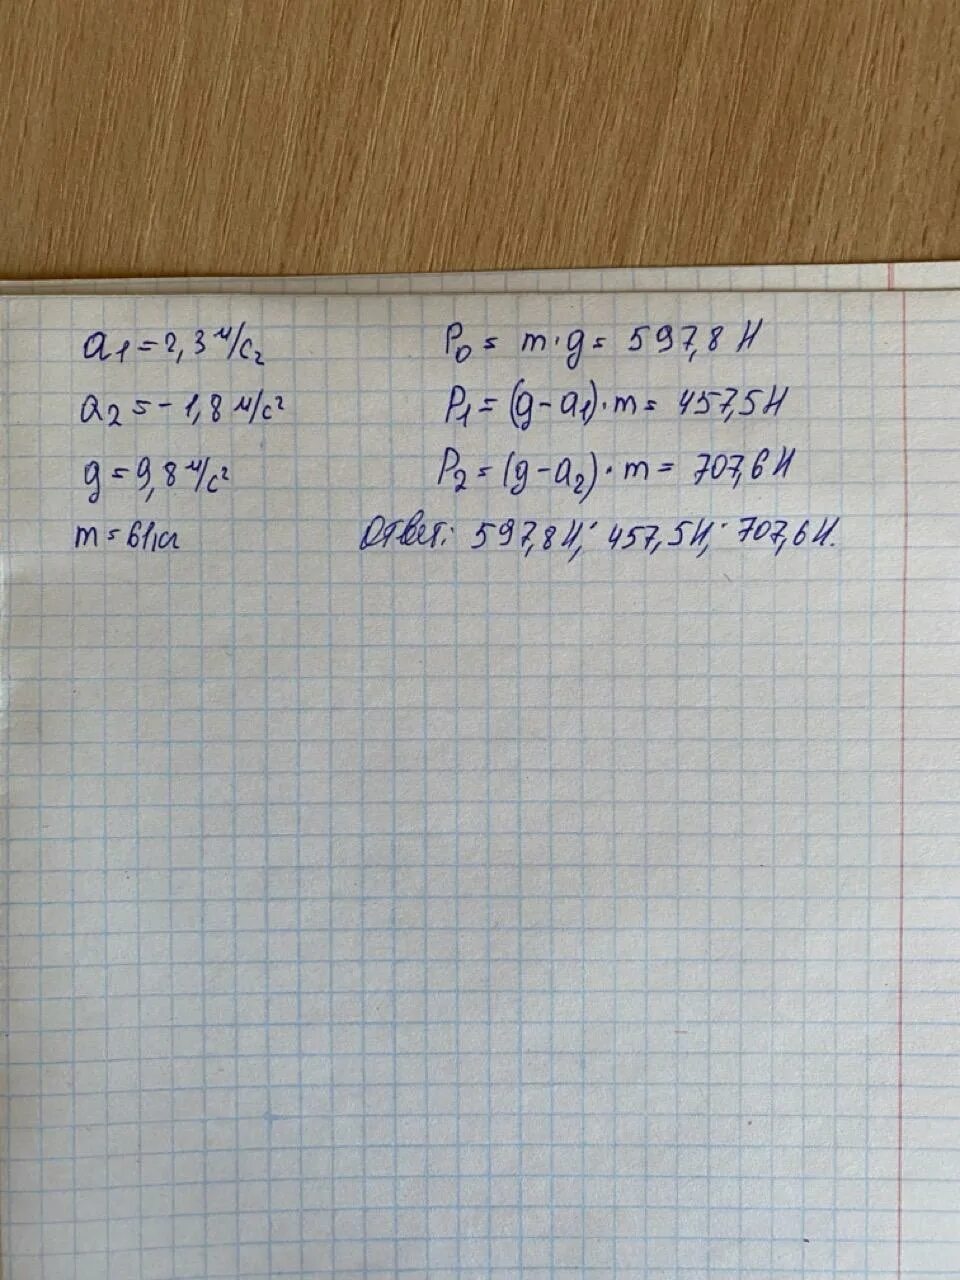 a₁ = 2,3 м/с₂
a₂ = -1,8 м/с²
g = 9,8 м/с²
m = 61кг
P₀ = m·g = 597,8 Н
P₁ = (g-a₁)·m = 457,5Н
P₂ = (g-a₂)·m = 707,6 Н
Ответ: 597,8Н; 457,5Н; 707,6Н.